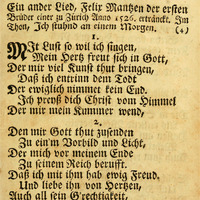 Ein ander Lied, Felix Mantzen der ersten
Brüder einer zu Zürich Anno 1526. ertränckt. Im
Thon, Ich stuhnd an einem Morgen. (4)
1.
MIt Lust so wil ich singen,
Mein Hertz freut sich in Gott,
Der mir viel Kunst thut bringen,
Daß ich entrinn dem Todt
Der ewiglich nimmet kein End.
Ich preyß dich Christ vom Himmel
Der mir mein Kummer wend,
2.
Den mir Gott thut zusenden
Zu ein'm Vorbild und Licht,
Der mich vor meinem Ende
Zu seinem Reich berufft.
Daß ich mit ihm hab ewig Freud.
Und liebe ihn von Hertzen,
Auch all sein G'rechtigkeit,